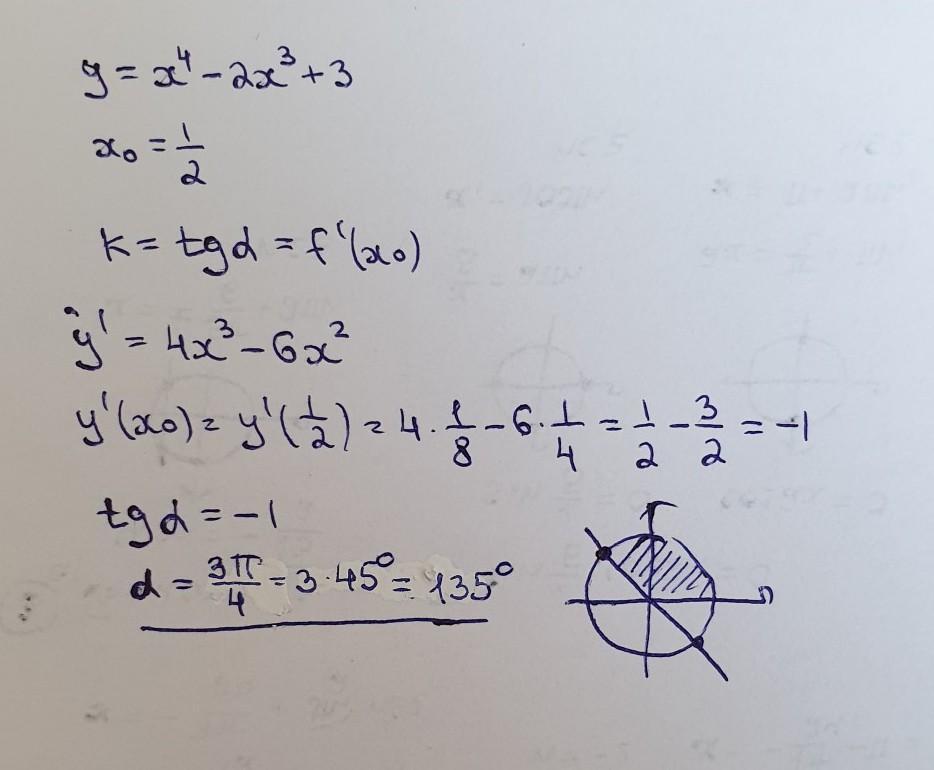 y = x⁴ - 2x³ + 3
x₀ = 1/2
k = tg α = f'(x₀)
y' = 4x³ - 6x²
y'(x₀) = y'(1/2) = 4 · 1/8 - 6 · 1/4 = 1/2 - 3/2 = -1
tg α = -1
α = 3π/4 = 3 · 45° = 135°